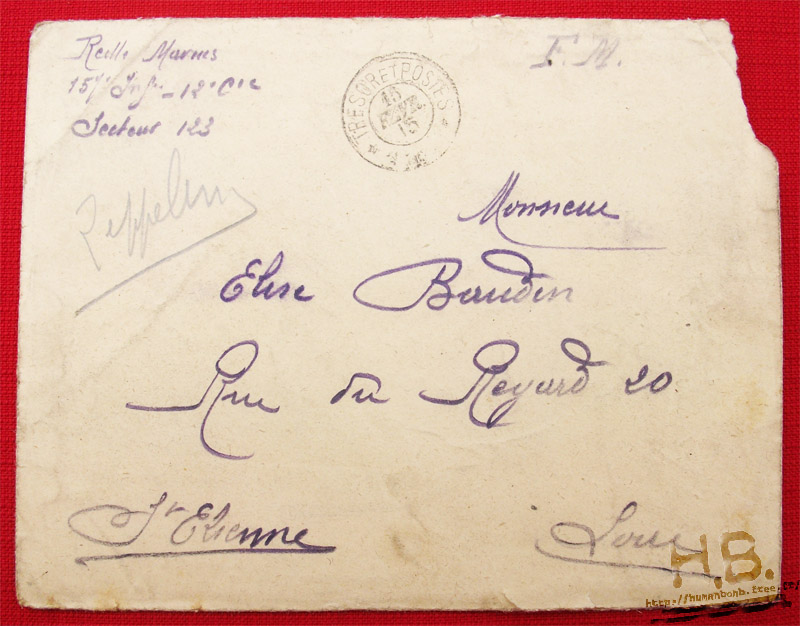 F. M.
12e Cie
Secteur 123
TRESOR ET POSTES
16
15
Zeppelin
Monsieur
Elise Baudin
Rue du Regard 20
St Etienne
Loire
H.B.
http://humanbomb.free.fr/